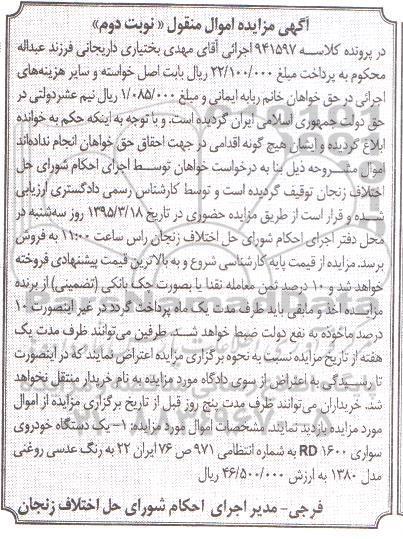 آگهی مزایده اموال منقول « نوبت دوم»
در پرونده کلاسه ۹۴۱۵۹۷ اجرائی آقای مهدی بختیاری داریحانی فرزند عبداله
محکوم به پرداخت مبلغ ۲۲/۱۰۰/۰۰۰ ریال بابت اصل خواسته و سایر هزینه‌های
اجرائی در حق خواهان خانم ربابه ایمانی و مبلغ ۱/۰۸۵/۰۰۰ ریال نیم عشردولتی در
حق دولت جمهوری اسلامی ایران گردیده است. و با توجه به اینکه حکم به خوانده
ابلاغ گردیده و ایشان هیچ گونه اقدامی در جهت احقاق حق خواهان انجام نداده‌اند
اموال مشروحه ذیل بنا به درخواست خواهان توسط اجرای احکام شورای حل
اختلاف زنجان توقیف گردیده است و توسط کارشناس رسمی دادگستری ارزیابی
شده و قرار است از طریق مزایده حضوری در تاریخ ۱۳۹۵/۳/۱۸ روز سه‌شنبه در
محل دفتر اجرای احکام شورای حل اختلاف زنجان راس ساعت ۱۱:۰۰ به فروش
برسد. مزایده از قیمت پایه کارشناسی شروع و به بالاترین قیمت پیشنهادی فروخته
خواهد شد و ۱۰ درصد ثمن معامله نقدا یا بصورت چک بانکی (تضمینی) از برنده
مزایده اخذ و مابقی باید ظرف مدت یک ماه پرداخت گردد در غیر اینصورت ۱۰
درصد ماخوذه به نفع دولت ضبط خواهد شد. طرفین می‌توانند ظرف مدت یک
هفته از تاریخ مزایده نسبت به نحوه برگزاری مزایده اعتراض نمایند که در اینصورت
تا رسیدگی به اعتراض از سوی دادگاه مورد مزایده به نام خریدار منتقل نخواهد
شد. خریداران می‌توانند ظرف مدت پنج روز قبل از تاریخ برگزاری مزایده از اموال
مورد مزایده بازدید نمایند. مشخصات اموال مورد مزایده: ۱- یک دستگاه خودروی
سواری RD ۱۶۰۰ به شماره انتظامی ۹۷۱ ص ۷۶ ایران ۲۲ به رنگ عدسی روغنی
مدل ۱۳۸۰ به ارزش ۴۶/۵۰۰/۰۰۰ ریال
فرجی- مدیر اجرای احکام شورای حل اختلاف زنجان